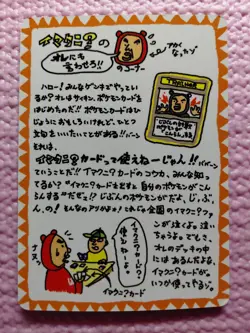 イマクニ?の
オレにも
言わせろ!!
のコーナー
ナガくなッタゾ
ハロー!みんなゲンキでやってい
るか?オレはサイキン、ポケモンカードを
はじめたのだ!!ポケモンカードは
じょうにおもしろいけれど、ひとつ
文句をいいたいことがある!!バーン
それは、
イマクニ?カードって使えねーじゃん!!ババーン
ていうことだ!!イマクニ?カードのコウカ、みんな知っ
てるか?"イマクニ?カードを出すと自分のポケモンがこん
らんする"だぜェ!?じぶんのポケモンがだよ、じ、ぶ、
ん、の!そんなのアリかよォ!これじゃ全国のイマクニ?ファ
ンが泣くよォ。泣い
ちゃうよォ。でもさ、
オレのデッキの中
には
あるんだよな、
イマクニ?カードが。
いつか使ってやるゾ。
イマクニ?カード
使えねーよ!
ナヌッ
イマクニ?カード